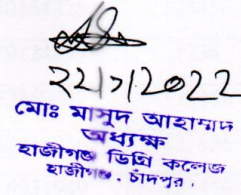 ২২/১/2022
মোঃ মাসুদ আহাম্মদ
অধ্যক্ষ
হাজীগঞ্জ ডিগ্রি কলেজ
হাজীগঞ্জ, চাঁদপুর।